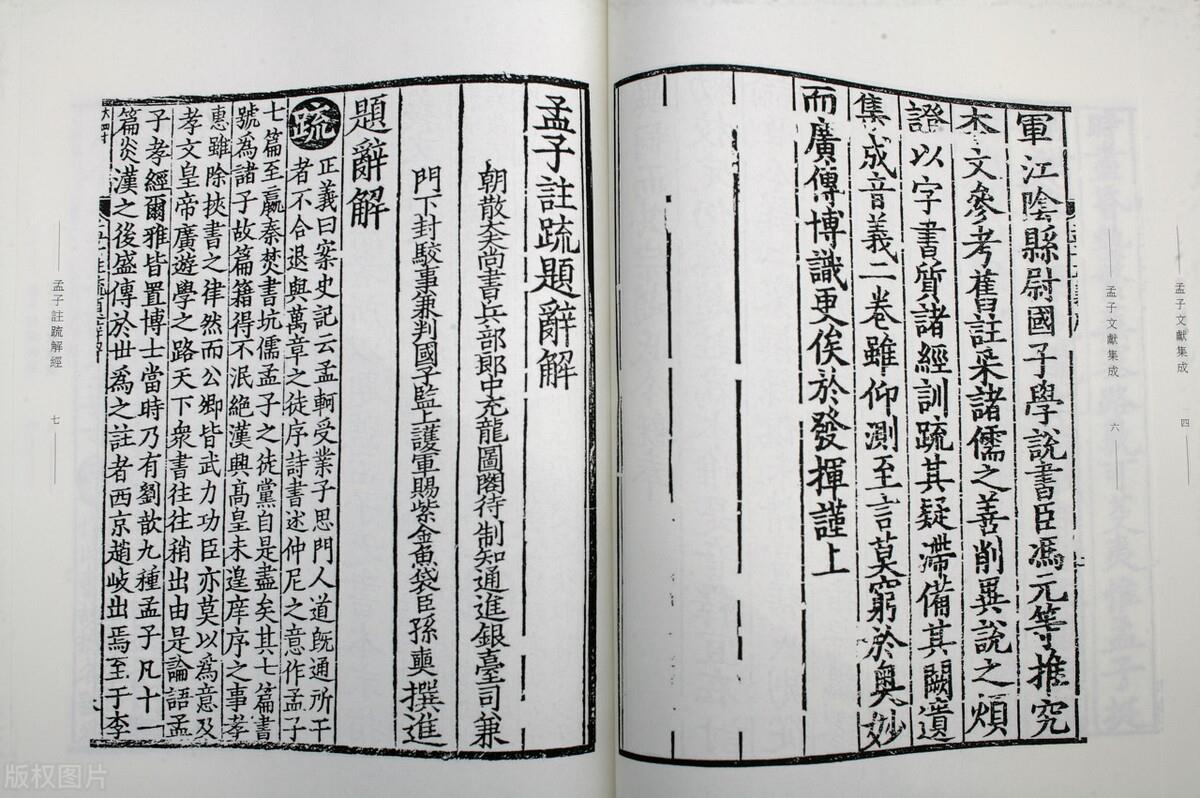 孟子文獻集成 四
孟子文獻集成 六
軍江陰縣尉國子學說書臣馮元等推究
本文參考舊註采諸儒之善削異說之煩
證以字書質諸經訓疏其疑滯備其闕遺
集成音義二卷雖仰測至言莫窮於奧妙
而廣傳博識更俟於發揮謹上
孟子註疏題辭解
朝散大夫尚書兵部郎中充龍圖閣待制知通進銀臺司兼
門下封駮事兼判國子監上護軍賜紫金魚袋臣孫奭撰進
題辭解
疏
正義曰案史記云孟軻受業子思門人道旣通所干
者不合退與萬章之徒序詩書述仲尼之意作孟子
七篇至嬴秦焚書坑儒孟子之徒黨自是盡矣其七篇書
號爲諸子故篇籍得不泯絕漢興高皇未遑庠序之事孝
惠雖除挾書之律然而公卿皆武力功臣亦莫以爲意及
孝文皇帝廣遊學之路天下衆書往往稍出由是論語孟
子孝經爾雅皆置博士當時乃有劉歆九種孟子凡十一
篇炎漢之後盛傳於世爲之註者西京趙岐出焉至于李
孟子註疏解經 七
版权图片